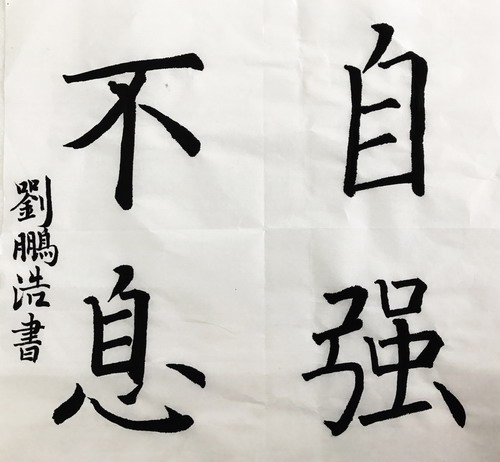 自强
不息
劉鵬浩書